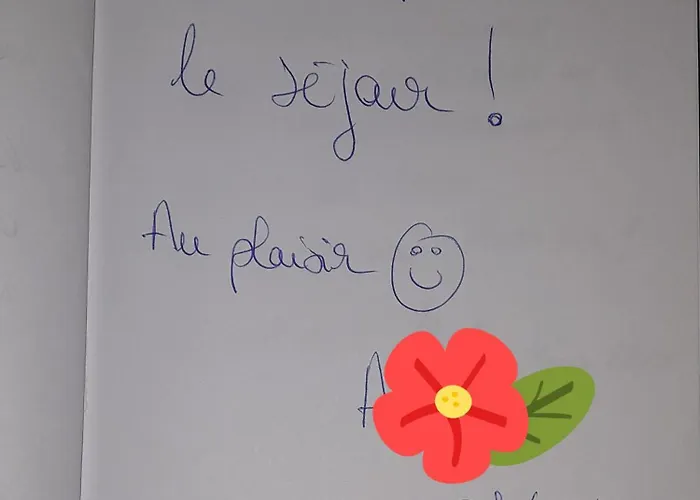 le séjour !
Au plaisir
A